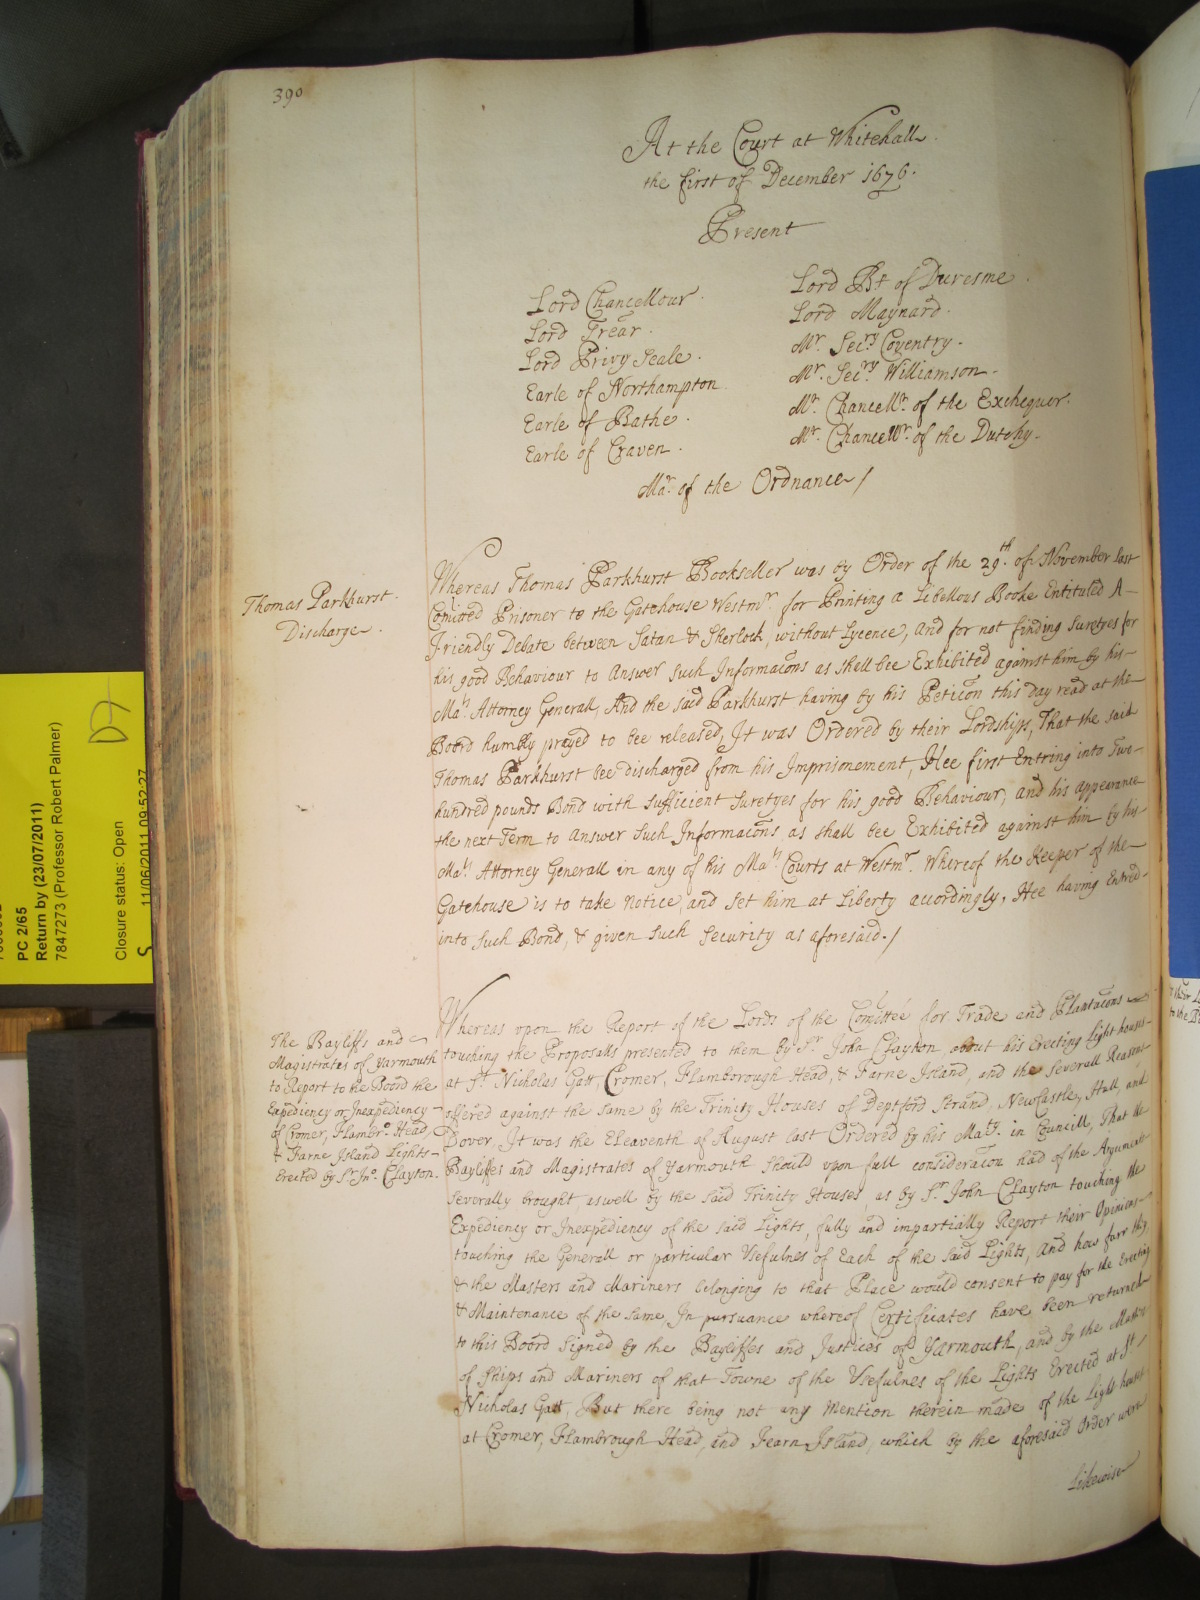 390
At the Court at Whitehall
the first of December 1676.
Present
Lord Chancellour.
Lord Trear.
Lord Privy Seale.
Earle of Northampton
Earle of Bathe.
Earle of Craven.
Lord Bp of Duresme.
Lord Maynard.
Mr. Secry Coventry.
Mr. Secry Williamson.
Mr. Chancellr. of the Exchequer.
Mr. Chancellr. of the Dutchy.
Mar. of the Ordnance /
Thomas Parkhurst.
Discharge.
Whereas Thomas Parkhurst Bookseller was by Order of the 29th. of November last
Comitted Prisoner to the Gatehouse Westmr. for Printing a Libellous Booke Entituled A
Friendly Debate between Satan & Sherlock, without Lycence, and for not finding Suretyes for
his good Behaviour to Answer such Informacons as shall bee Exhibited against him by his
Mats. Attorney Generall, And the said Parkhurst having by his Peticon this day read at the
Board humbly prayed to bee released, It was Ordered by their Lordships, That the said
Thomas Parkhurst bee discharged from his Imprisonement, Hee first Entring into Two
hundred pounds Bond with sufficient Suretyes for his good Behaviour, and his appearance
the next Term to Answer such Informacons as shall bee Exhibited against him by his
Mats Attorney Generall in any of his Mats Courts at Westmr. Whereof the Keeper of the
Gatehouse is to take notice, and set him at Liberty accordingly, Hee having Entred
into such Bond, & given such Security as aforesaid. /
The Bayliffs and
Magistrates of Yarmouth
to Report to the Board the
Expediency or Inexpediency
of Cromer, Flambro. Head,
& Farne Island Lights
Erected by Sr. Jno. Clayton.
Whereas upon the Report of the Lords of the Comittee for Trade and Plantacons
touching the Proposalls presented to them by Sr. John Clayton, about his Erecting Light houses
at St. Nicholas Gatt, Cromer, Flamborough Head, & Farne Island, and the severall Reasons
offered against the same by the Trinity Houses of Deptford Strand, Newcastle, Hull, and
Dover, It was the Eleaventh of August last Ordered by his Maty. in Councill, That the
Bayliffes and Magistrates of Yarmouth should upon full consideracon had of the Arguments
severally brought, aswell by the said Trinity Houses, as by Sr. John Clayton touching the
Expediency or Inexpediency of the said Lights, fully and impartially Report their Opinions
touching the Generall or particular Usefulnes of Each of the said Lights, and how farr they
& the Masters and Mariners belonging to that Place would consent to pay for the Erecting
& Maintenance of the same, In pursuance whereof Certificates have been returned
to this Board signed by the Bayliffes and Justices of Yarmouth, and by the Masters
of Ships and Mariners of that Towne of the Usefulnes of the Lights Erected at St.
Nicholas Gatt, But there being not any mention therein made of the Light houses
at Cromer, Flambrough Head, and Fearn Island, which by the aforesaid Order were
Likewise
PC 2/65
Return by (23/07/2011)
7847273 (Professor Robert Palmer)
Closure status: Open
S 11/06/2011 09:52:27